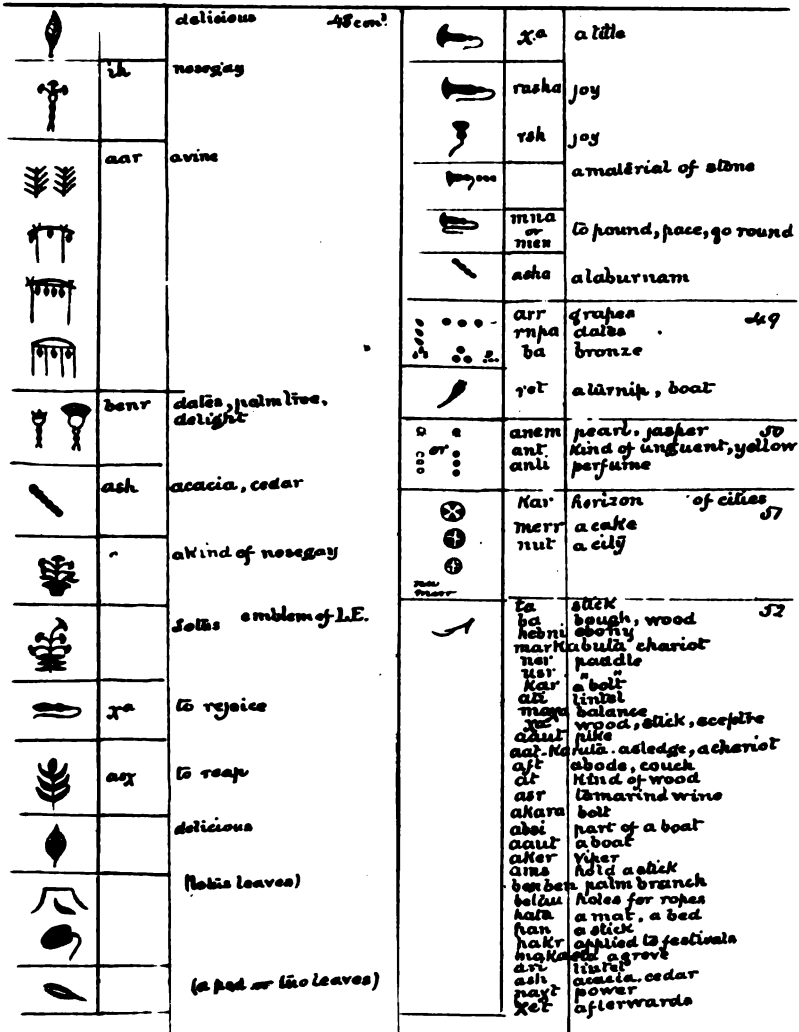 delicious 48 con.d
ih nosegay
aar a vine
benr dates, palm tree,
delight
ash acacia, cedar
a kind of nosegay
lotus emblem of L.E.
χa to rejoice
asχ to reap
delicious
(lotus leaves)
(a pod or two leaves)
χa a little
rasha joy
rsh joy
a material of stone
mna
or
men to pound, pace, go round
asha a laburnam
arr grapes 49
rnpa dates
ba bronze
ret a turnip, boat
anem pearl, jasper 50
or ant kind of unguent, yellow
anti perfume
Kar horizon of cities
51
merr a cake
nut a city
nu
merr
ta stick 52
ba bough, wood
hebni ebony
marKabuta chariot
ner paddle
usr " "
Kar a bolt
ati lintel
balance
χa wood, stick, sceptre
aaut pike
aat-Karuta. a sledge, a chariot
aft abode, couch
at Kind of wood
asr tamarind wine
akara bolt
absi part of a boat
aaut a boat
aKer viper
ams hold a stick
benben palm branch
holes for ropes
hata a mat, a bed
han a stick
haKr applied to festivals
a grove
ari lintel
ash acacia. cedar
naχt power
χet afterwards